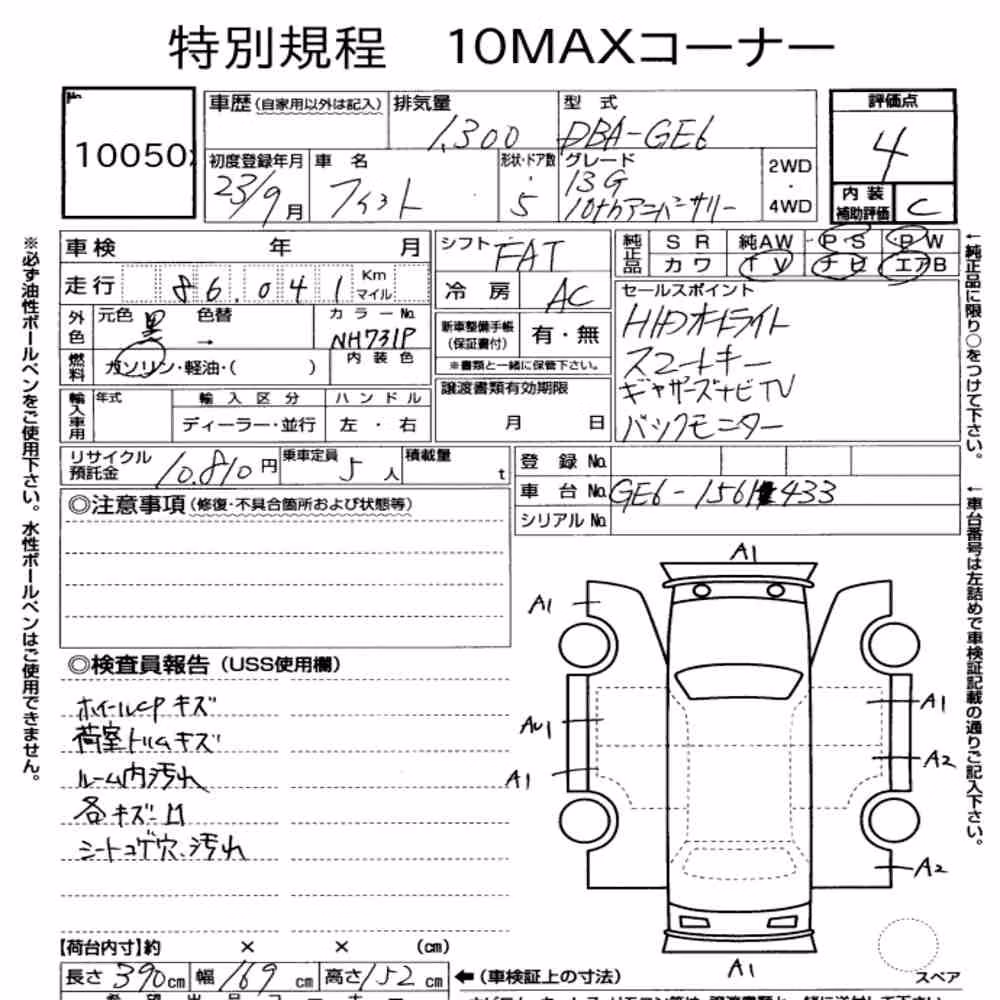 特別規程 10MAXコーナー
10050
車歴(自家用以外は記入) 排気量 1,300 型式 DBA-GE6
評価点 4
内装補助評価 C
初度登録年月 23/9月 車名 フィット 形状・ドア数 5 グレード 13G 10thアニバーサリー 2WD・4WD
車検 年 月
走行 86.041 Km マイル
外色 元色 黒 色替 → カラーNo. NH731P
燃料 ガソリン・軽油・( ) 内装色
輸入車用 年式 輸入区分 ディーラー・並行 ハンドル 左・右
シフト FAT
冷房 AC
新車整備手帳(保証書付) 有・無
※書類と一緒に保管下さい。
譲渡書類有効期限 月 日
純正品 SR 純AW PS PW
カワ TV ナビ エアB
セールスポイント
HIDオートライト
スマートキー
ギャザーズナビTV
バックモニター
リサイクル預託金 10.810円 乗車定員 5人 積載量 t
登録No.
車台No. GE6-1561433
シリアルNo.
◎注意事項(修復・不具合箇所および状態等)
◎検査員報告(USS使用欄)
ホイールCPキズ
荷室トリムキズ
ルーム内汚れ
各キズ凹
シートコゲ穴、汚れ
A1
A1
AU1
A1
A1
A2
A2
A1
スペア
【荷台内寸】約 × × (cm)
長さ 390cm 幅 169cm 高さ 152cm ←(車検証上の寸法)
※必ず油性ボールペンをご使用下さい。水性ボールペンはご使用できません。
←純正品に限り○をつけて下さい。
←車台番号は左詰めで車検証記載の通りご記入下さい。